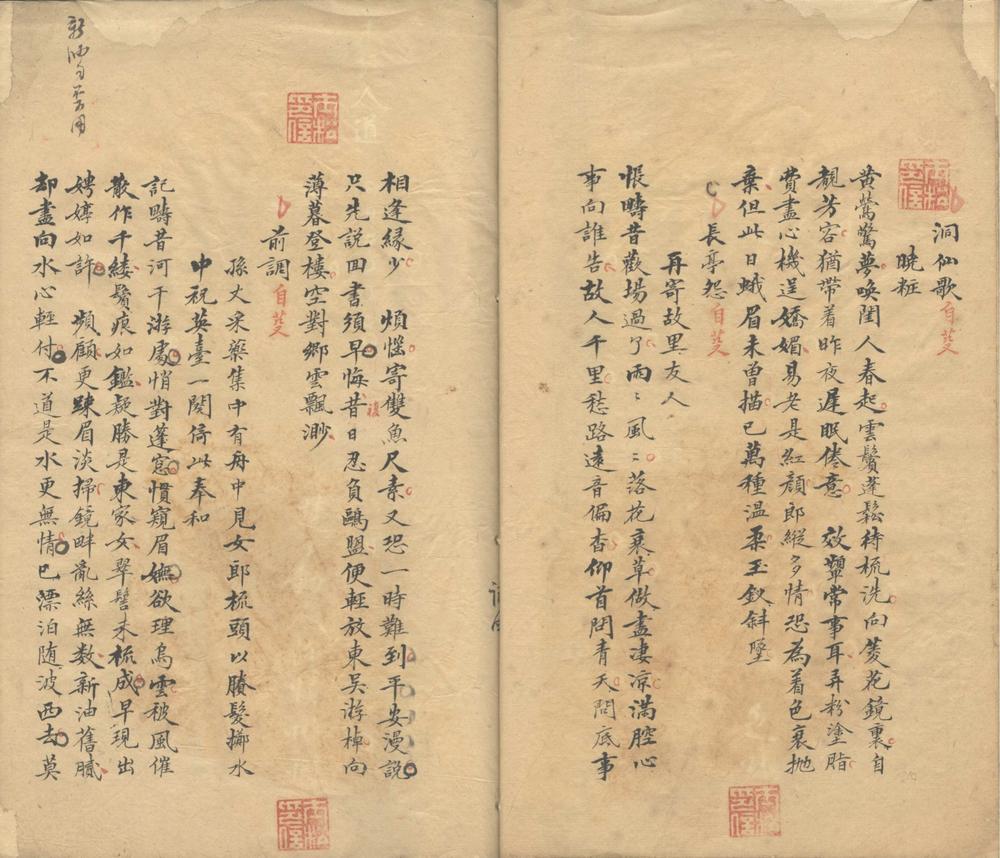 洞仙歌 自芟
曉粧
黃鶯驚夢喚閨人春起雲鬢蓬鬆待梳洗向菱花鏡裏自
靚芳容猶帶着昨夜遲眠倦意 效顰常事耳弄粉塗脂
費盡心機逞嬌媚易老是紅顏郎縱多情恐為着色衰拋
棄但此日蛾眉未曾描已萬種溫柔玉釵斜墜
長亭怨 自芟
再寄故里友人
悵疇昔歡場過了雨〻風〻落花衰草做盡淒涼滿腔心
事向誰告故人千里愁路遠音偏杳仰首問青天問底事
相逢緣少 煩惱寄雙魚尺素又恐一時難到平安漫說
只先說回書須早悔昔日忍負鷗盟便輕放東吳游棹向
復
薄暮登樓空對鄉雲飄渺
前調 自芟
孫丈采藥集中有舟中見女郎梳頭以賸髮擲水
中祝英臺一闋倚此奉和
記疇昔河干游處悄對蓬窓慣窺眉嫵欲理烏雲被風催
散作千縷鬢痕如鑑疑勝是東家女翠髻未梳成早現出
娉婷如許 頻顧更踈眉淡掃鏡畔亂絲無数新油舊膩
却盡向水心輕付不道是水更無情已漂泊随波西去莫
新油句不用